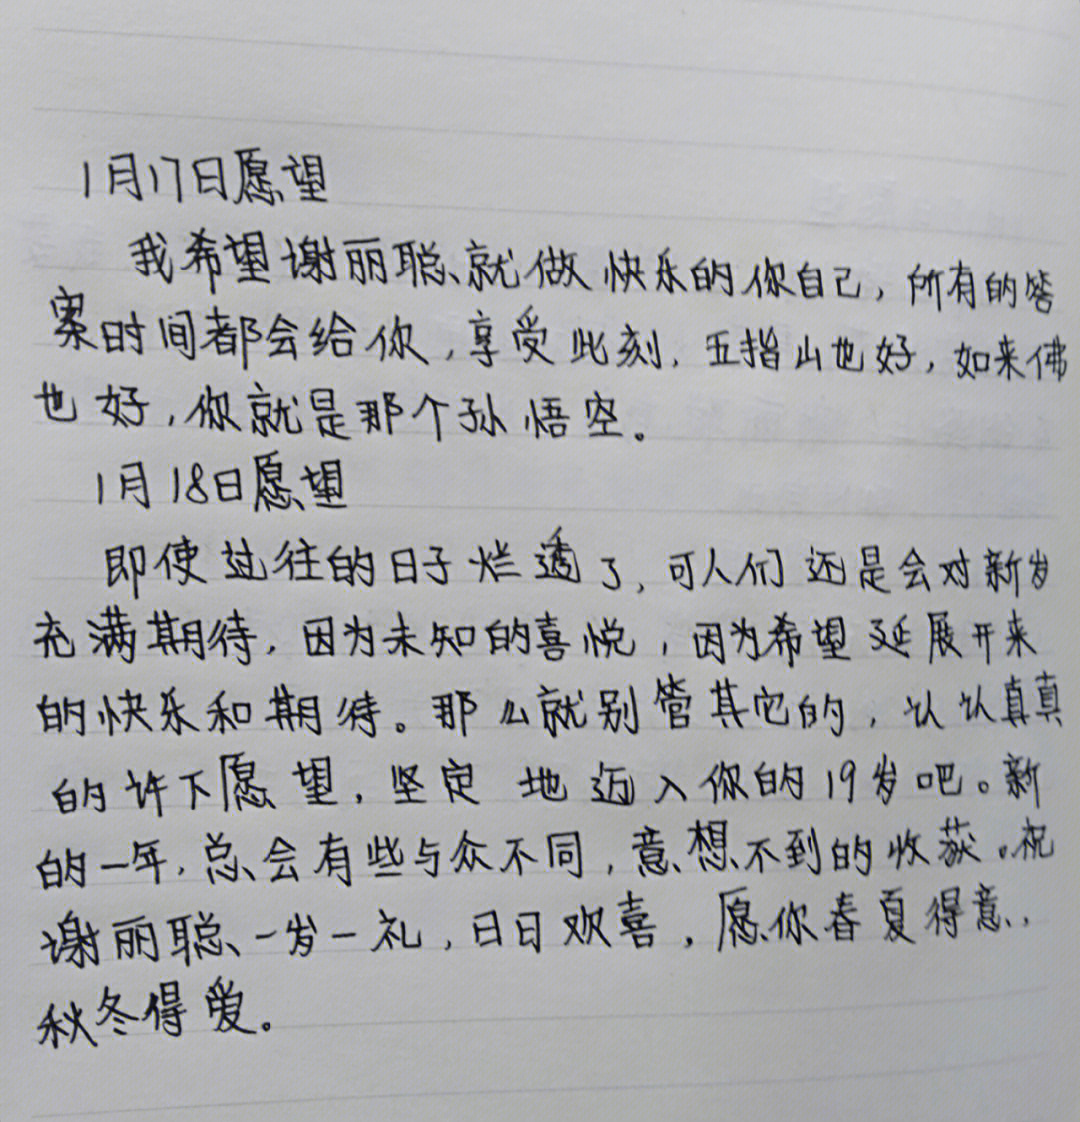 1月17日愿望
我希望谢丽聪、就做快乐的你自己，所有的答
案时间都会给你，享受此刻，五指山也好，如来佛
也好，你就是那个孙悟空。
1月18日愿望
即使过往的日子烂透了，可人们还是会对新岁
充满期待，因为未知的喜悦，因为希望延展开来
的快乐和期待。那么就别管其它的，认认真真
的许下愿望，坚定地迈入你的19岁吧。新
的一年，总会有些与众不同，意想不到的收获。祝
谢丽聪、一岁一礼，日日欢喜，愿你春夏得意，
秋冬得爱。